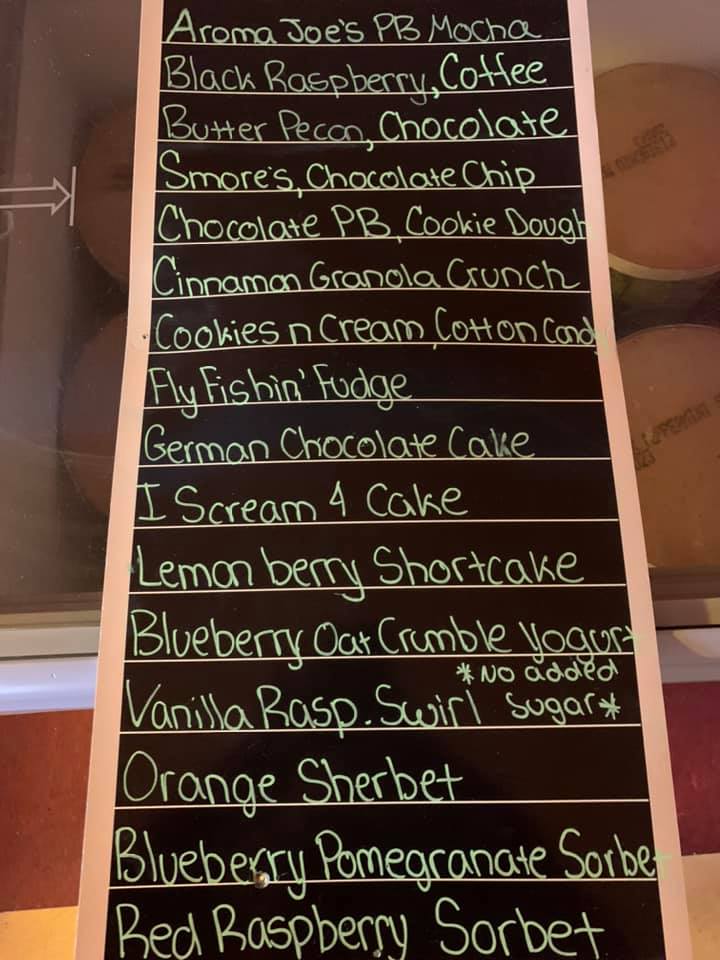 Aroma Joe's PB Mocha
Black Raspberry, Coffee
Butter Pecan, Chocolate
Smore's, Chocolate Chip
Chocolate PB, Cookie Dough
Cinnamon Granola Crunch
Cookies n Cream, Cotton Candy
Fly Fishin' Fudge
German Chocolate Cake
I Scream 4 Cake
Lemon berry Shortcake
Blueberry Oat Crumble Yogurt
Vanilla Rasp. Swirl *No added Sugar*
Orange Sherbet
Blueberry Pomegranate Sorbet
Red Raspberry Sorbet